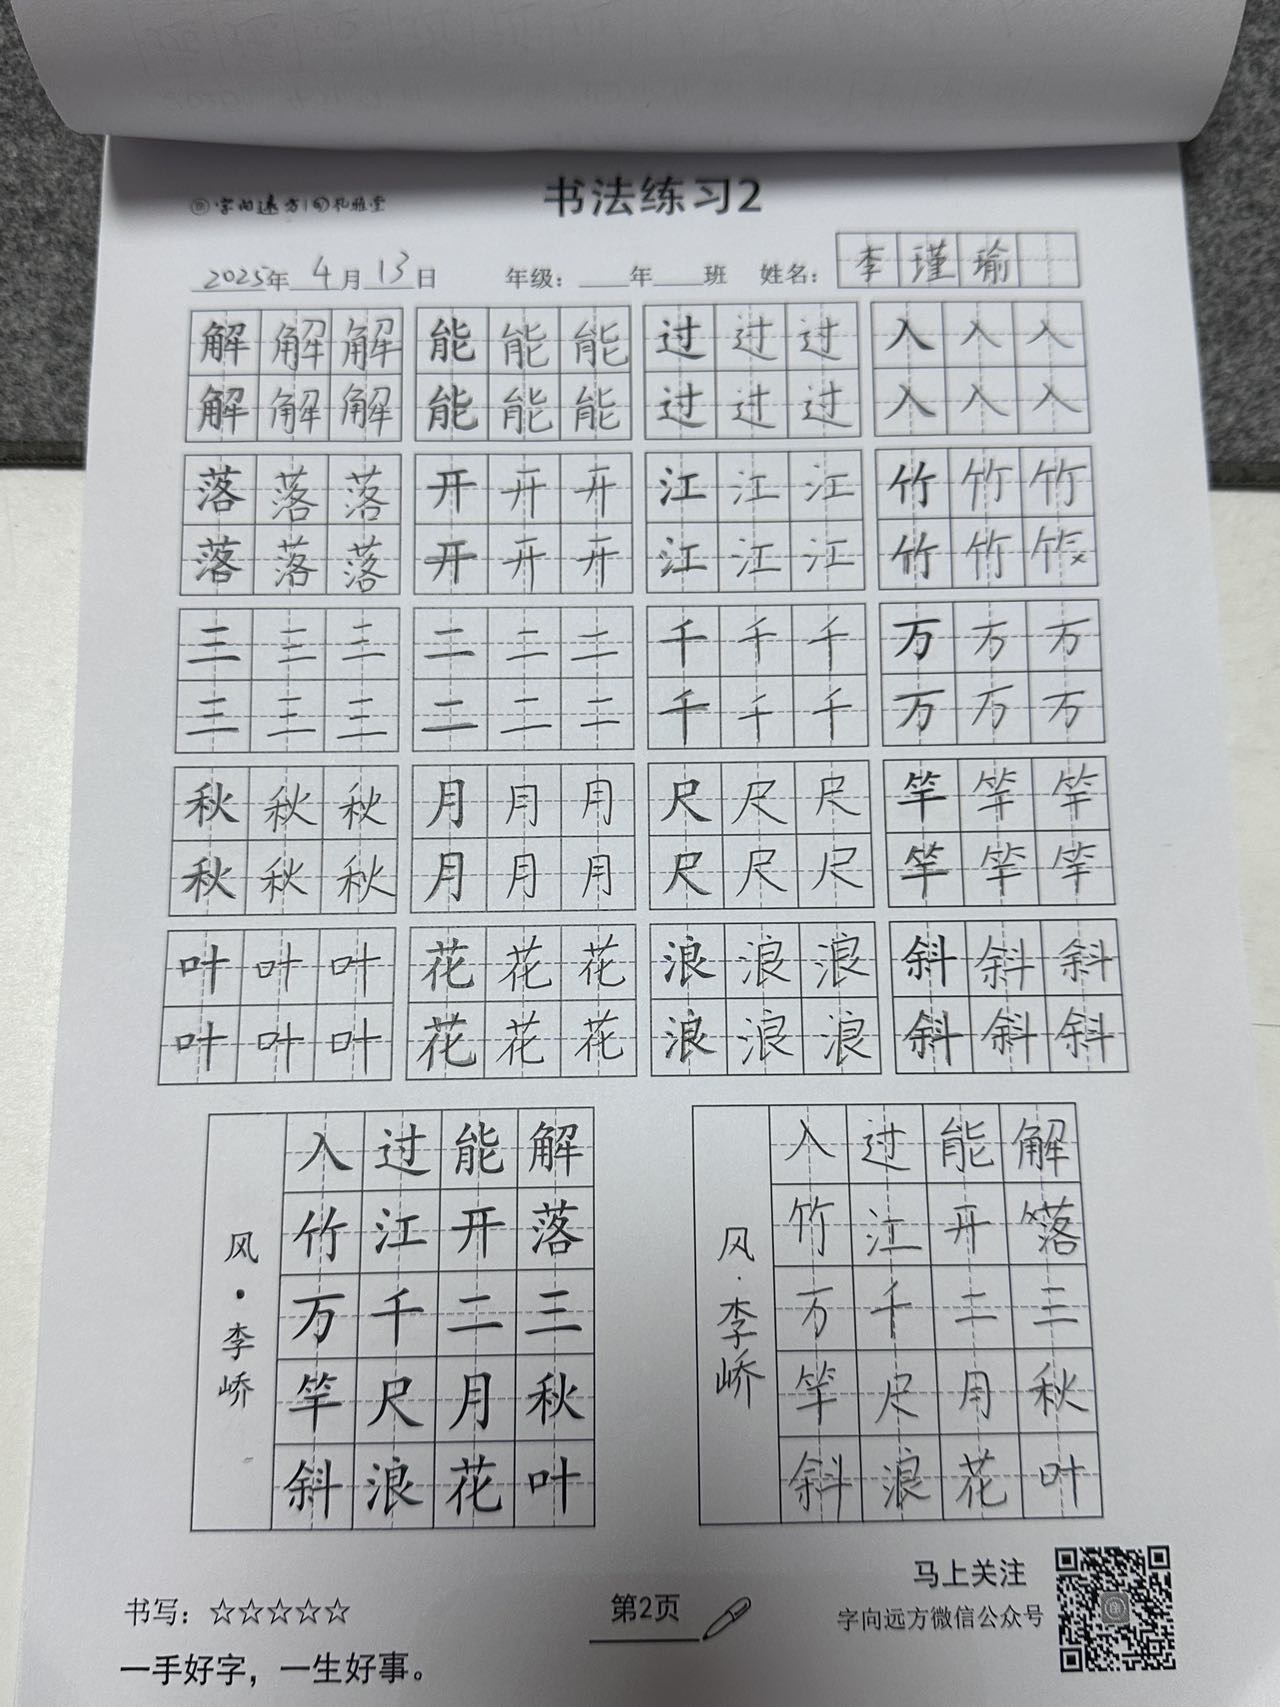 字向远方 | 旬礼雅堂
书法练习2
2025年 4月 13日 年级：____年____班 姓名：李瑾瑜
解解解 能能能 过过过 入入入
解解解 能能能 过过过 入入入
落落落 开开开 江江江 竹竹竹
落落落 开开开 江江江 竹竹
三三三 二二二 千千千 万万万
三三三 二二二 千千千 万万万
秋秋秋 月月月 尺尺尺 竿竿竿
秋秋秋 月月月 尺尺尺 竿竿竿
叶叶叶 花花花 浪浪浪 斜斜斜
叶叶叶 花花花 浪浪浪 斜斜斜
解落三秋叶
能开二月花
过江千尺浪
入竹万竿斜
风·李峤
解落三秋叶
能开二月花
过江千尺浪
入竹万竿斜
风·李峤
书写：☆☆☆☆☆
一手好字，一生好事。
第2页
马上关注
字向远方微信公众号